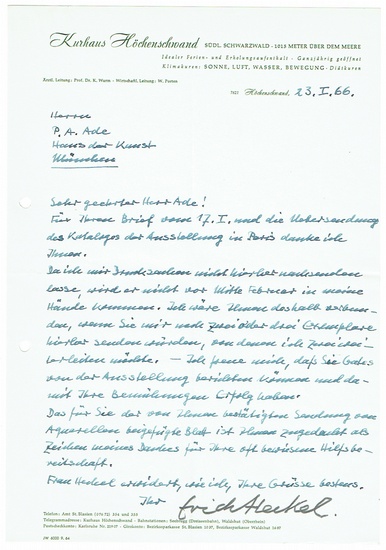 Kurhaus Höchenschwand SÜDL. SCHWARZWALD · 1015 METER ÜBER DEM MEERE
Idealer Ferien- und Erholungsaufenthalt · Ganzjährig geöffnet
Klimakuren: SONNE, LUFT, WASSER, BEWEGUNG · Diätkuren
Ärztl. Leitung: Prof. Dr. K. Wurm · Wirtschaftl. Leitung: W. Porten
7821 Höchenschwand, 23. I. 66.
Herrn
P. A. Ade
Haus der Kunst
München
Sehr geehrter Herr Ade!
Für Ihren Brief vom 17. I. und die Uebersendung
des Kataloges der Ausstellung in Paris danke ich
Ihnen.
Da ich mir Drucksachen nicht hierher nachsenden
lasse, wird er nicht vor Mitte Februar in meine
Hände kommen. Ich wäre Ihnen deshalb verbun-
den, wenn Sie mir noch zwei oder drei Exemplare
hierher senden würden, von denen ich zwei wei-
terleiten möchte. — Ich freue mich, daß Sie Gutes
von der Ausstellung berichten können und da-
mit Ihre Bemühungen Erfolg haben.
Das für Sie der von Ihnen bestätigten Sendung von
Aquarellen beigefügte Blatt ist Ihnen zugedacht als
Zeichen meines Dankes für Ihre oft bewiesene Hilfsbe-
reitschaft.
Frau Heckel erwidert, wie ich, Ihre Grüsse bestens.
Ihr Erich Heckel.
Telefon: Amt St. Blasien (07672) 354 und 355
Telegrammadresse: Kurhaus Höchenschwand · Bahnstationen: